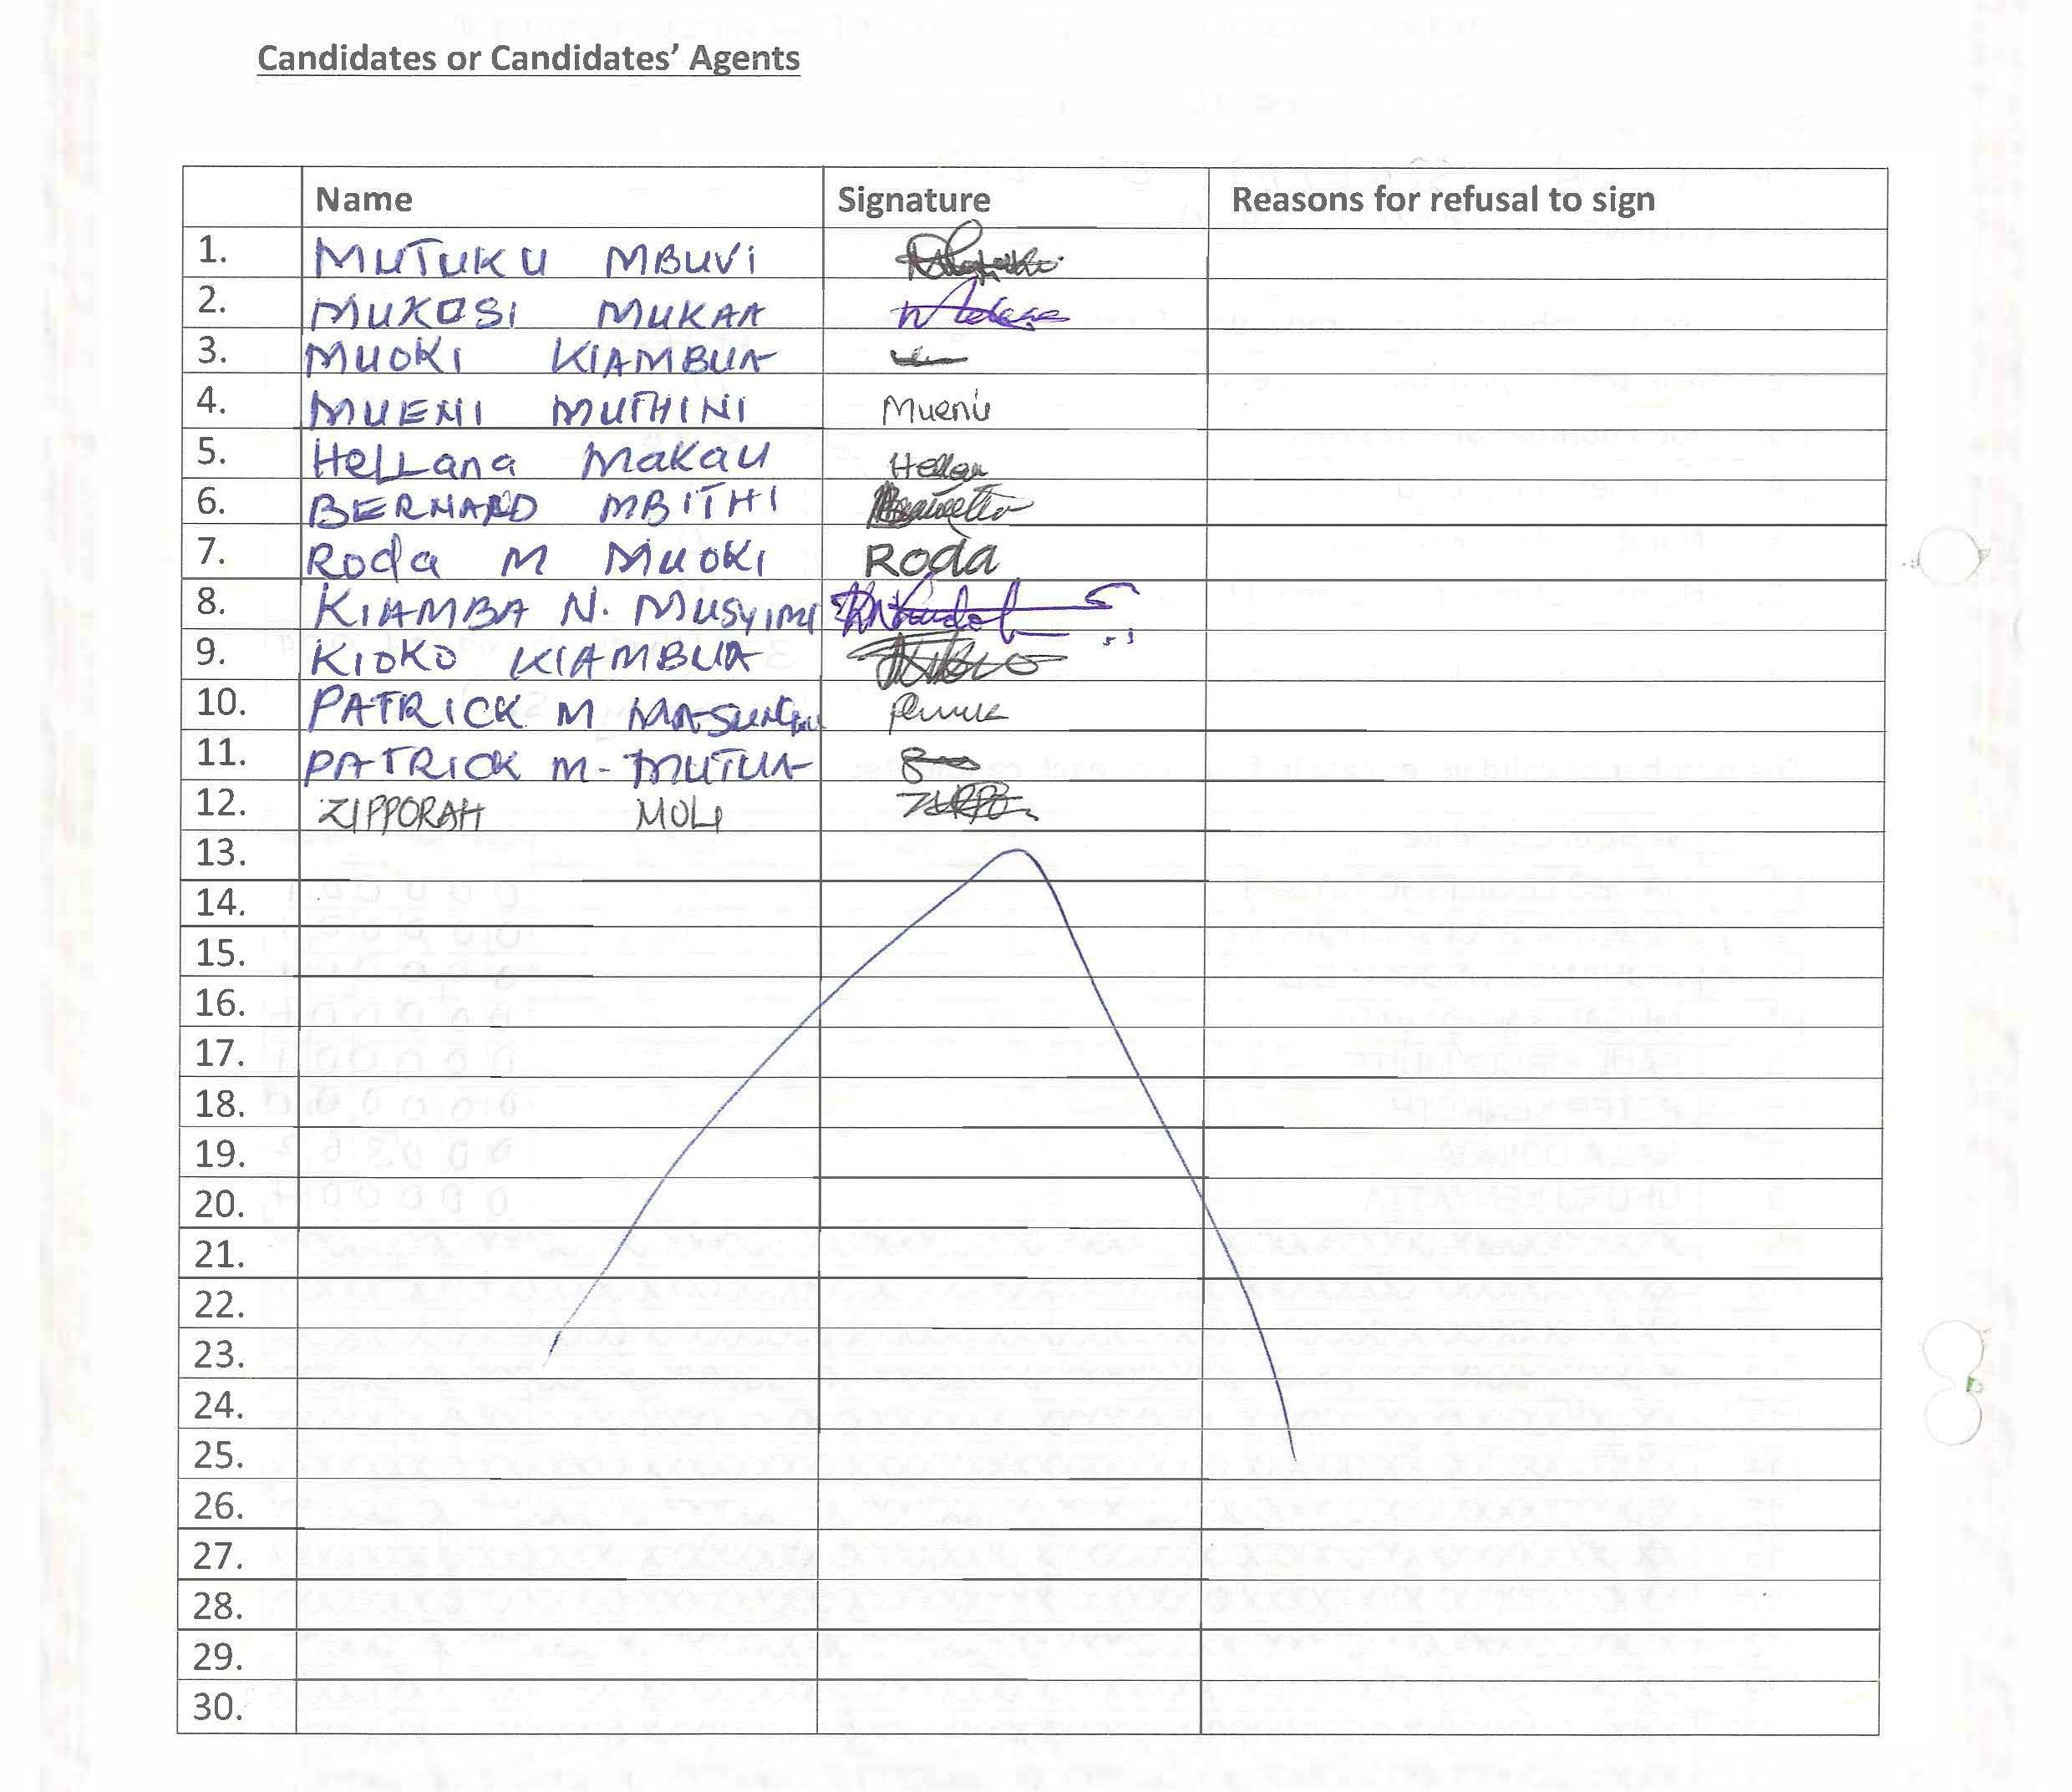 Candidates or Candidates' Agents
Name Signature Reasons for refusal to sign
1. MUTUKU MBUVI
2. MUKOSI MUKAA
3. MUOKI KIAMBUA
4. MUENI MUTHINI Mueni
5. HeLLana Makau Hellen
6. BERNARD MBITHI
7. Roda M MUOKI RODA
8. KIAMBA N. MUSYIMI
9. KIOKO KIAMBUA
10. PATRICK M
11. PATRICK M- MUTUA
12. ZIPPORAH MULI
13.
14.
15.
16.
17.
18.
19.
20.
21.
22.
23.
24.
25.
26.
27.
28.
29.
30.